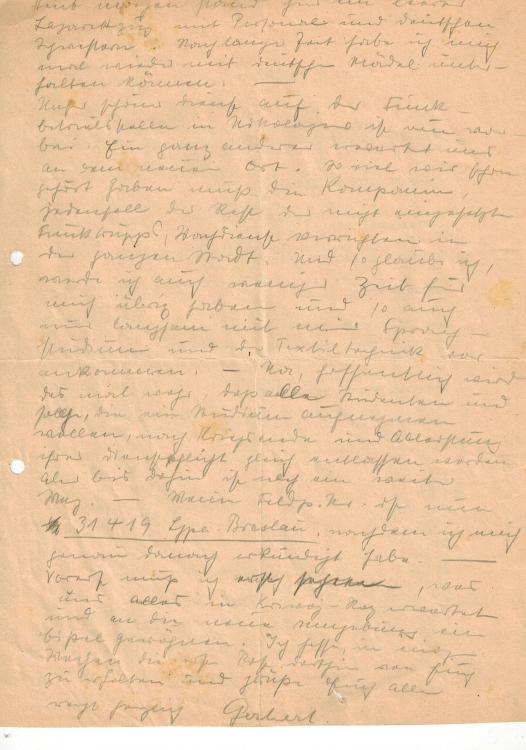 Lazarettzug mit Personal und deutschen
Schwestern. Nach langer Zeit habe ich mich
mal wieder mit deutschen Mädel unter-
halten können. —
Unser schöner Dienst auf der Funk-
betriebsstelle in Nikolajew ist nun vor-
bei. Ein ganz anderer erwartet uns
an dem neuen Ort. So viel wir schon
gehört haben muß die Kompanie,
jedenfalls der Rest der nicht eingesetzten
Funktrupps, Wachdienst verrichten in
der ganzen Stadt. Und so glaube ich,
werde ich auch weniger Zeit für
mich übrig haben und so auch
nur langsam mit meinem Sprach-
studium und der Textiltechnik vor-
ankommen. — Na, hoffentlich wird
das mal wahr, daß alle Studenten und
solche, die ein Studium aufnehmen
wollen, nach Kriegsende und Ableistung
ihrer Dienstpflicht gleich entlassen werden
Aber bis dahin ist noch ein weiter
Weg. — Meine Feldp. Nr. ist nun
31419 Lgpa. Breslau, nachdem ich mich
genau danach erkundigt habe. —
Vorerst muß ich , was
uns alles in Kriwoj-Rog erwartet
und an die neue Umgebung ein
bißel gewöhnen. Ich hoffe, in
Wochen die erste Post dorthin von Euch
zu erhalten und grüße Euch alle
recht herzlich Gerhert.